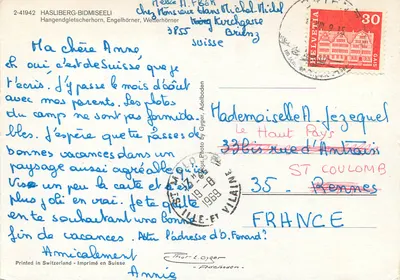 2-41942 HASLIBERG-BIDMISEELI
Hangendgletscherhorn, Engelhörner, Wetterhörner
chez Monsieur Hans Michel Michel
Kirchgasse
3855 Brienz
Suisse
HELVETIA
30
Ma chère Anne,
Ici c'est de Suisse que je
t'écris. J'y passe le mois d'août
avec mes parents. Les photos
du camp ne sont pas formida-
bles. J'espère que tu passes de
bonnes vacances dans un
paysage aussi agréable qu'ici
un peu la carte et c'est
plus joli en vrai. Je te quitte
en te souhaitant une bonne
fin de vacances.
l'adresse d'b. Fenaut?
Amicalement
Annie
Mademoiselle A. Jezequel
Le Haut Pays
33bis rue d'Antrain
ST COULOMB
35 - Rennes
FRANCE
19-8
1969
ILLE-ET-VILAINE
Photo E. Gyger, Adelboden
Printed in Switzerland - Imprimé en Suisse
Phot. E. Gyger
Adelboden